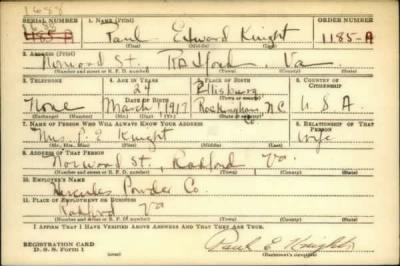 1688
SERIAL NUMBER 1. NAME (Print) ORDER NUMBER
1185-A Paul Edward Knight 1185-A
(First) (Middle) (Last)
2. ADDRESS (Print)
Norwood St. Radford, Va
(Number and street or R. F. D. number) (Town) (County) (State)
3. TELEPHONE 4. AGE IN YEARS 5. PLACE OF BIRTH 6. COUNTRY OF CITIZENSHIP
24
(Town or county)
None DATE OF BIRTH Rockingham, N.C U S A
March 1917
(Exchange) (Number) (Mo.) (Day) (Yr.) (State or country)
7. NAME OF PERSON WHO WILL ALWAYS KNOW YOUR ADDRESS 8. RELATIONSHIP OF THAT PERSON
Mrs. P. E Knight Wife
(Mr., Mrs., Miss) (First) (Middle) (Last)
9. ADDRESS OF THAT PERSON
Norwood St, Radford Va
(Number and street or R. F. D. number) (Town) (County) (State)
10. EMPLOYER'S NAME
Hercules Powder Co.
11. PLACE OF EMPLOYMENT OR BUSINESS
Radford Va
(Number and street or R. F. D. number) (Town) (County) (State)
I AFFIRM THAT I HAVE VERIFIED ABOVE ANSWERS AND THAT THEY ARE TRUE.
REGISTRATION CARD
D. S. S. Form 1 Paul E Knight
(Registrant's signature)